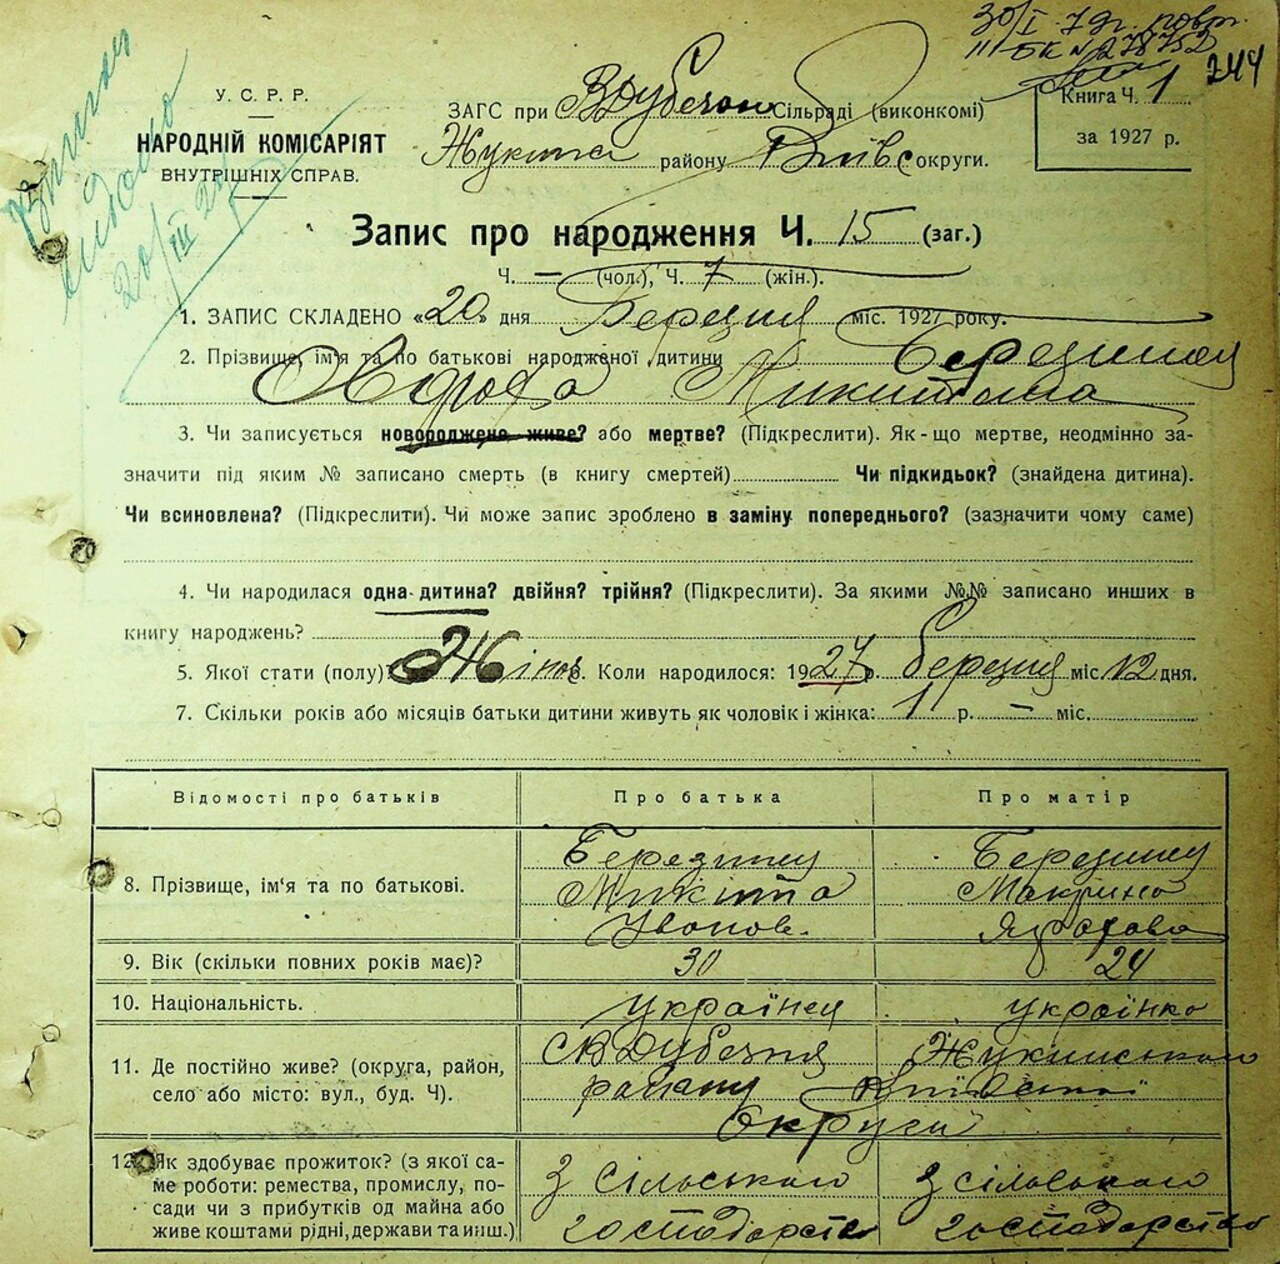 30/I 79г. повт.
III БК № 278752
244
У. С. Р. Р.
НАРОДНІЙ КОМІСАРІЯТ
ВНУТРІШНІХ СПРАВ.
ЗАГС при В Дубечан Сільраді (виконкомі)
Жукинс району Київс округи.
Книга Ч. 1
за 1927 р.
Запис про народження Ч. 15 (заг.)
Ч. — (чол.), Ч. 7 (жін.).
1. ЗАПИС СКЛАДЕНО «20» дня Березня міс. 1927 року.
2. Прізвище, ім'я та по батькові народженої дитини
Микитівна
3. Чи записується новороджене живе? або мертве? (Підкреслити). Як-що мертве, неодмінно за-
значити під яким № записано смерть (в книгу смертей) Чи підкидьок? (знайдена дитина).
Чи всиновлена? (Підкреслити). Чи може запис зроблено в заміну попереднього? (зазначити чому саме)
4. Чи народилася одна дитина? двійня? трійня? (Підкреслити). За якими №№ записано инших в
книгу народжень?
5. Якої стати (полу)? Жіноч. Коли народилося: 1927 р. березня міс. 12 дня.
7. Скільки років або місяців батьки дитини живуть як чоловік і жінка: 1 р. — міс.
Відомості про батьків Про батька Про матір
8. Прізвище, ім'я та по батькові.
Микіта
Иванов.
Макрина
9. Вік (скільки повних років має)? 30 24
10. Національність. українец українка
11. Де постійно живе? (округа, район,
село або місто: вул., буд. Ч).
с В Дубечня Жукинського
району Київської
округи
12. Як здобуває прожиток? (з якої са-
ме роботи: ремества, промислу, по-
сади чи з прибутків од майна або
живе коштами рідні, держави та инш.)
З сільського
господарства
З сільського
господарства